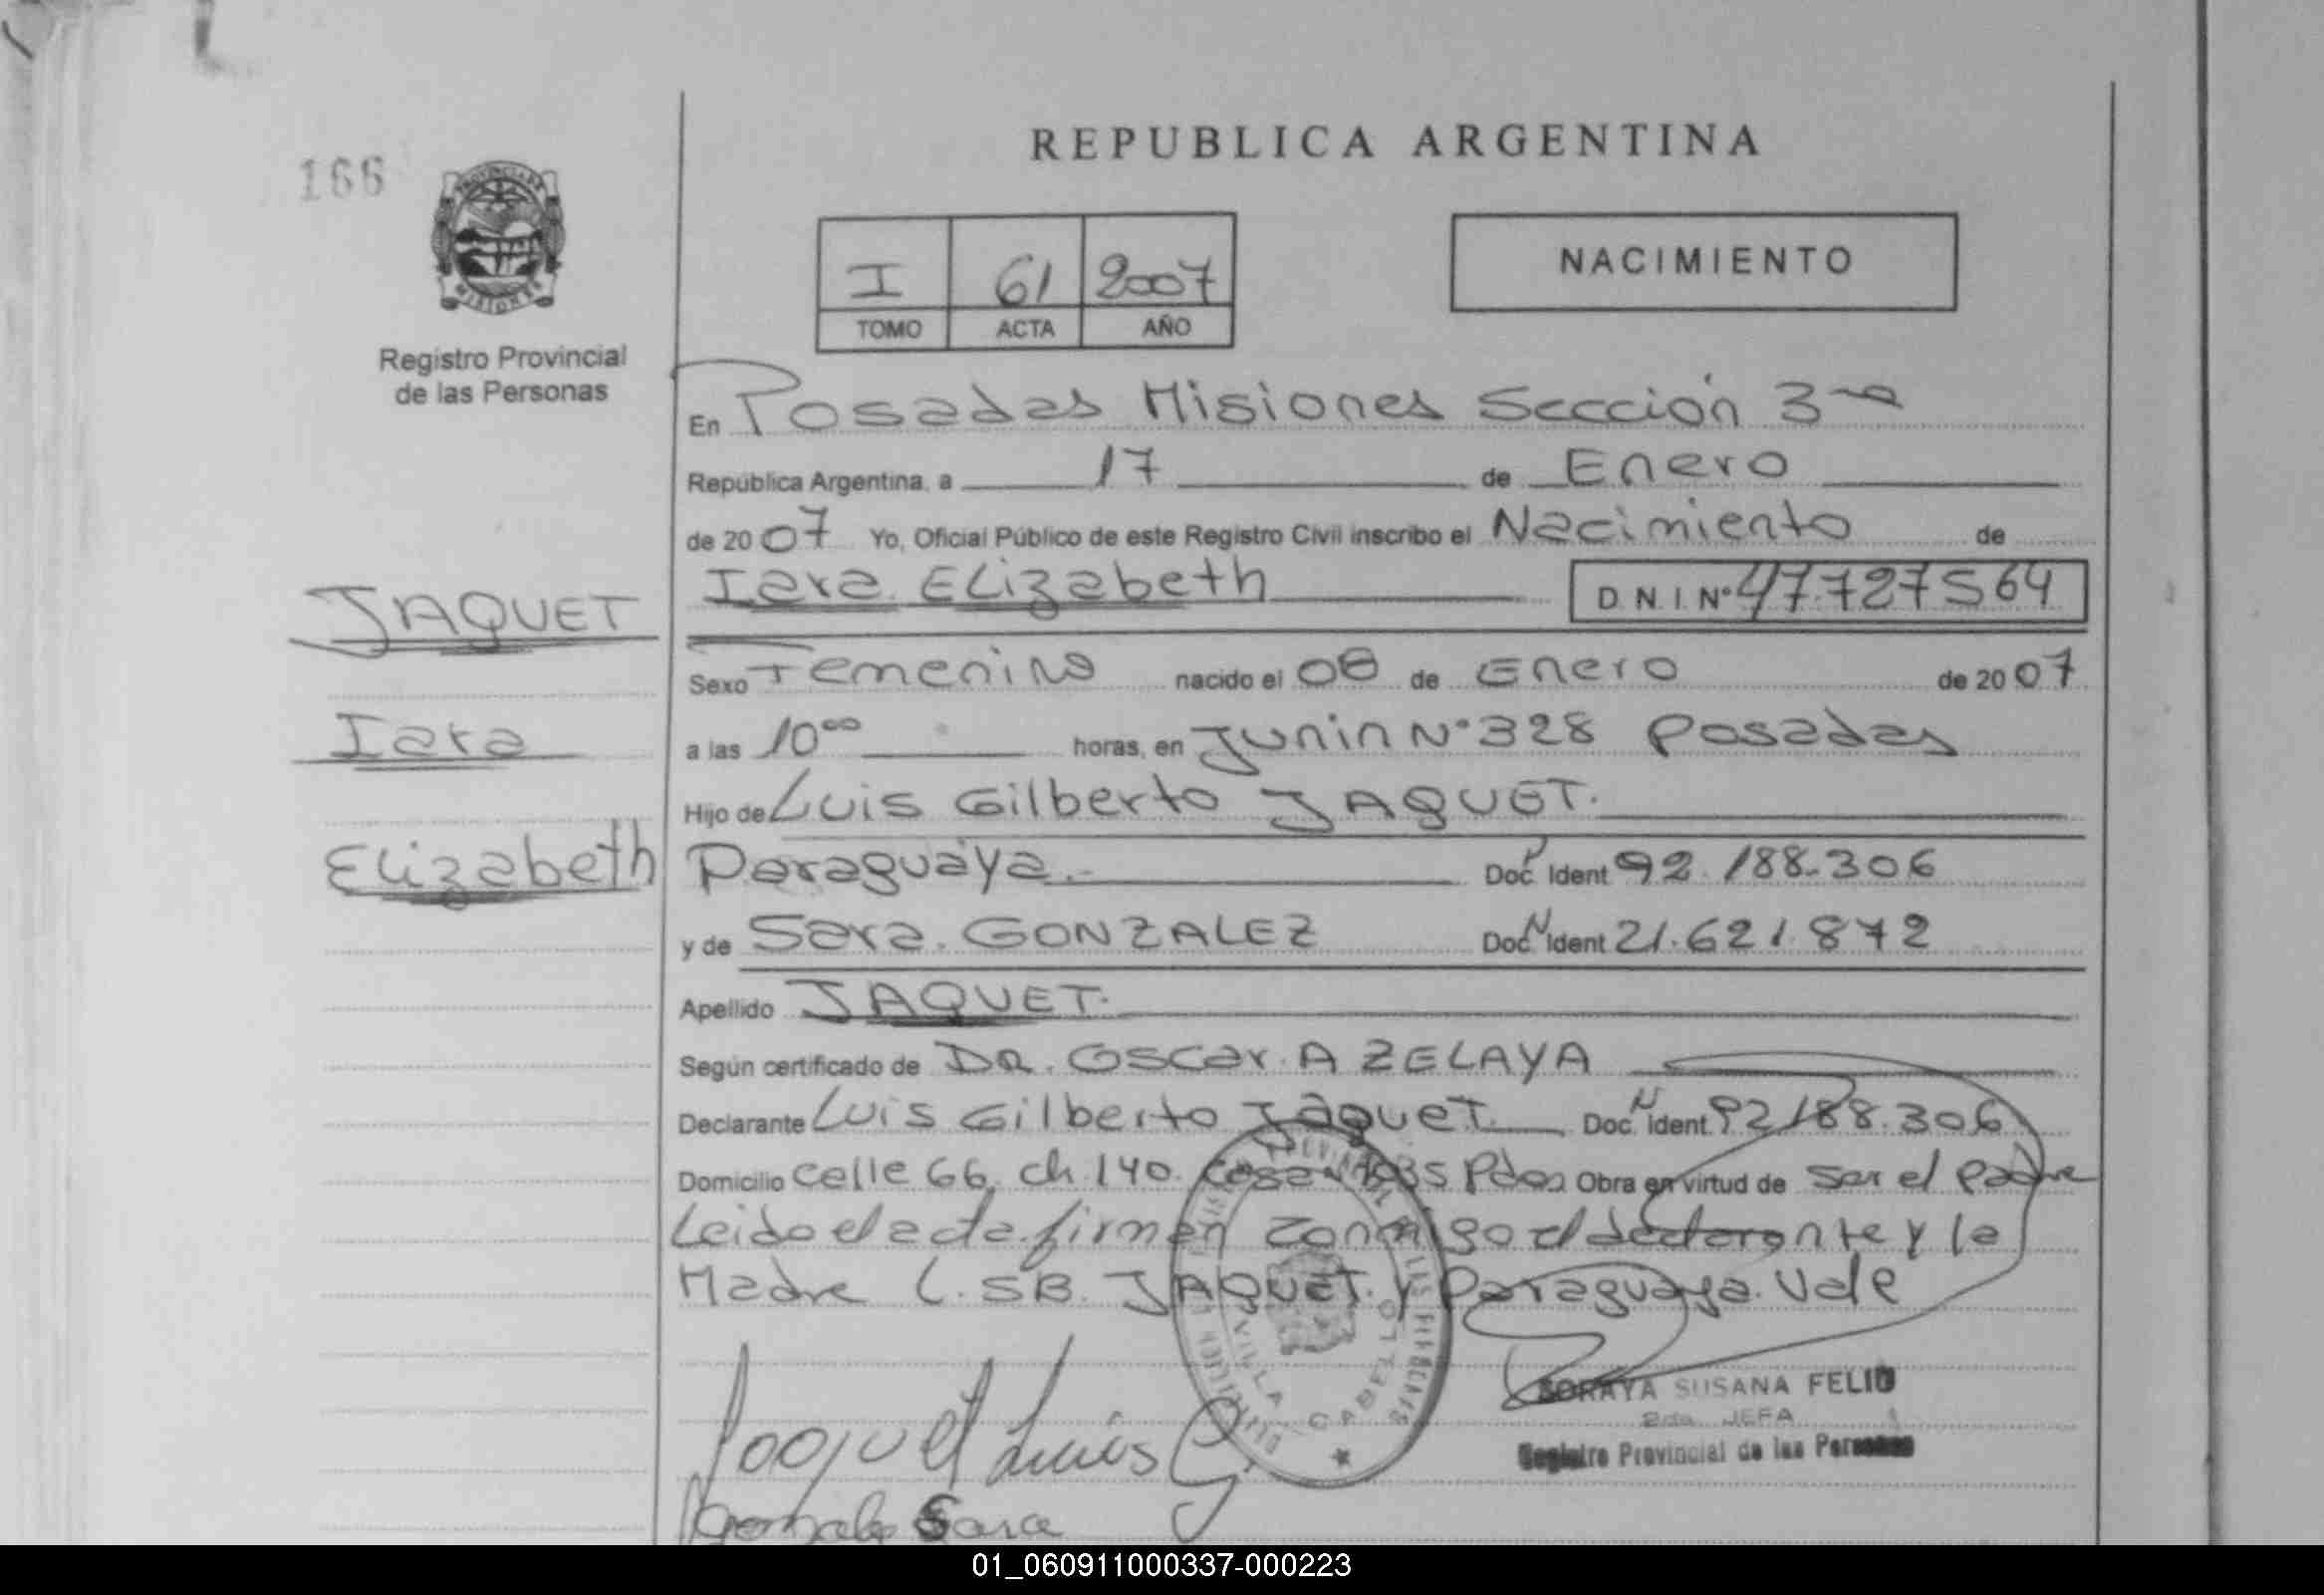 166
REPUBLICA ARGENTINA
PROVINCIA DE
MISIONES
Registro Provincial
de las Personas
I 61 2007
TOMO ACTA AÑO
NACIMIENTO
En Posadas Misiones Sección 3ra
República Argentina, a 17 de Enero
de 2007 Yo, Oficial Público de este Registro Civil inscribo el Nacimiento de
Iara Elizabeth D.N.I. Nº 47.727564
JAQUET
Sexo Femenino nacido el 08 de Enero de 2007
Iara
a las 1000 horas, en Junin Nº 328 Posadas
Hijo de Luis Gilberto JAQUET.
Elizabeth
Paraguaya. Doc Ident 92.188.306
y de Sara. GONZALEZ Doc N Ident 21.621.872
Apellido JAQUET.
Según certificado de DR. Oscar. A ZELAYA
Declarante Luis Gilberto Jaquet. Doc N ident 92188.306
Domicilio calle 66, ch 140. casa Pdas Obra en virtud de ser el padre
Leido el acta firman conmigo el declarante y la
Madre L. SB. JAQUET. y Paraguaya. Vale
VILLA CABELLO
SORAYA SUSANA FELIU
2da JEFA
Registro Provincial de las Personas
Jaquet Luis G.
Gonzalez Sara
01_060911000337-000223